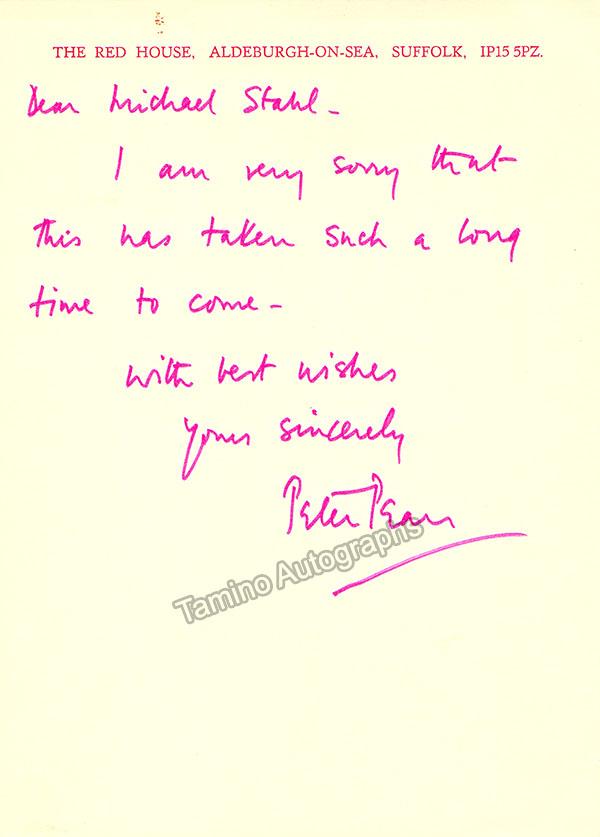 THE RED HOUSE, ALDEBURGH-ON-SEA, SUFFOLK, IP15 5PZ.
Dear Michael Stahl -
I am very sorry that
this has taken such a long
time to come -
with best wishes
yours sincerely
Peter Pears
Tamino Autographs